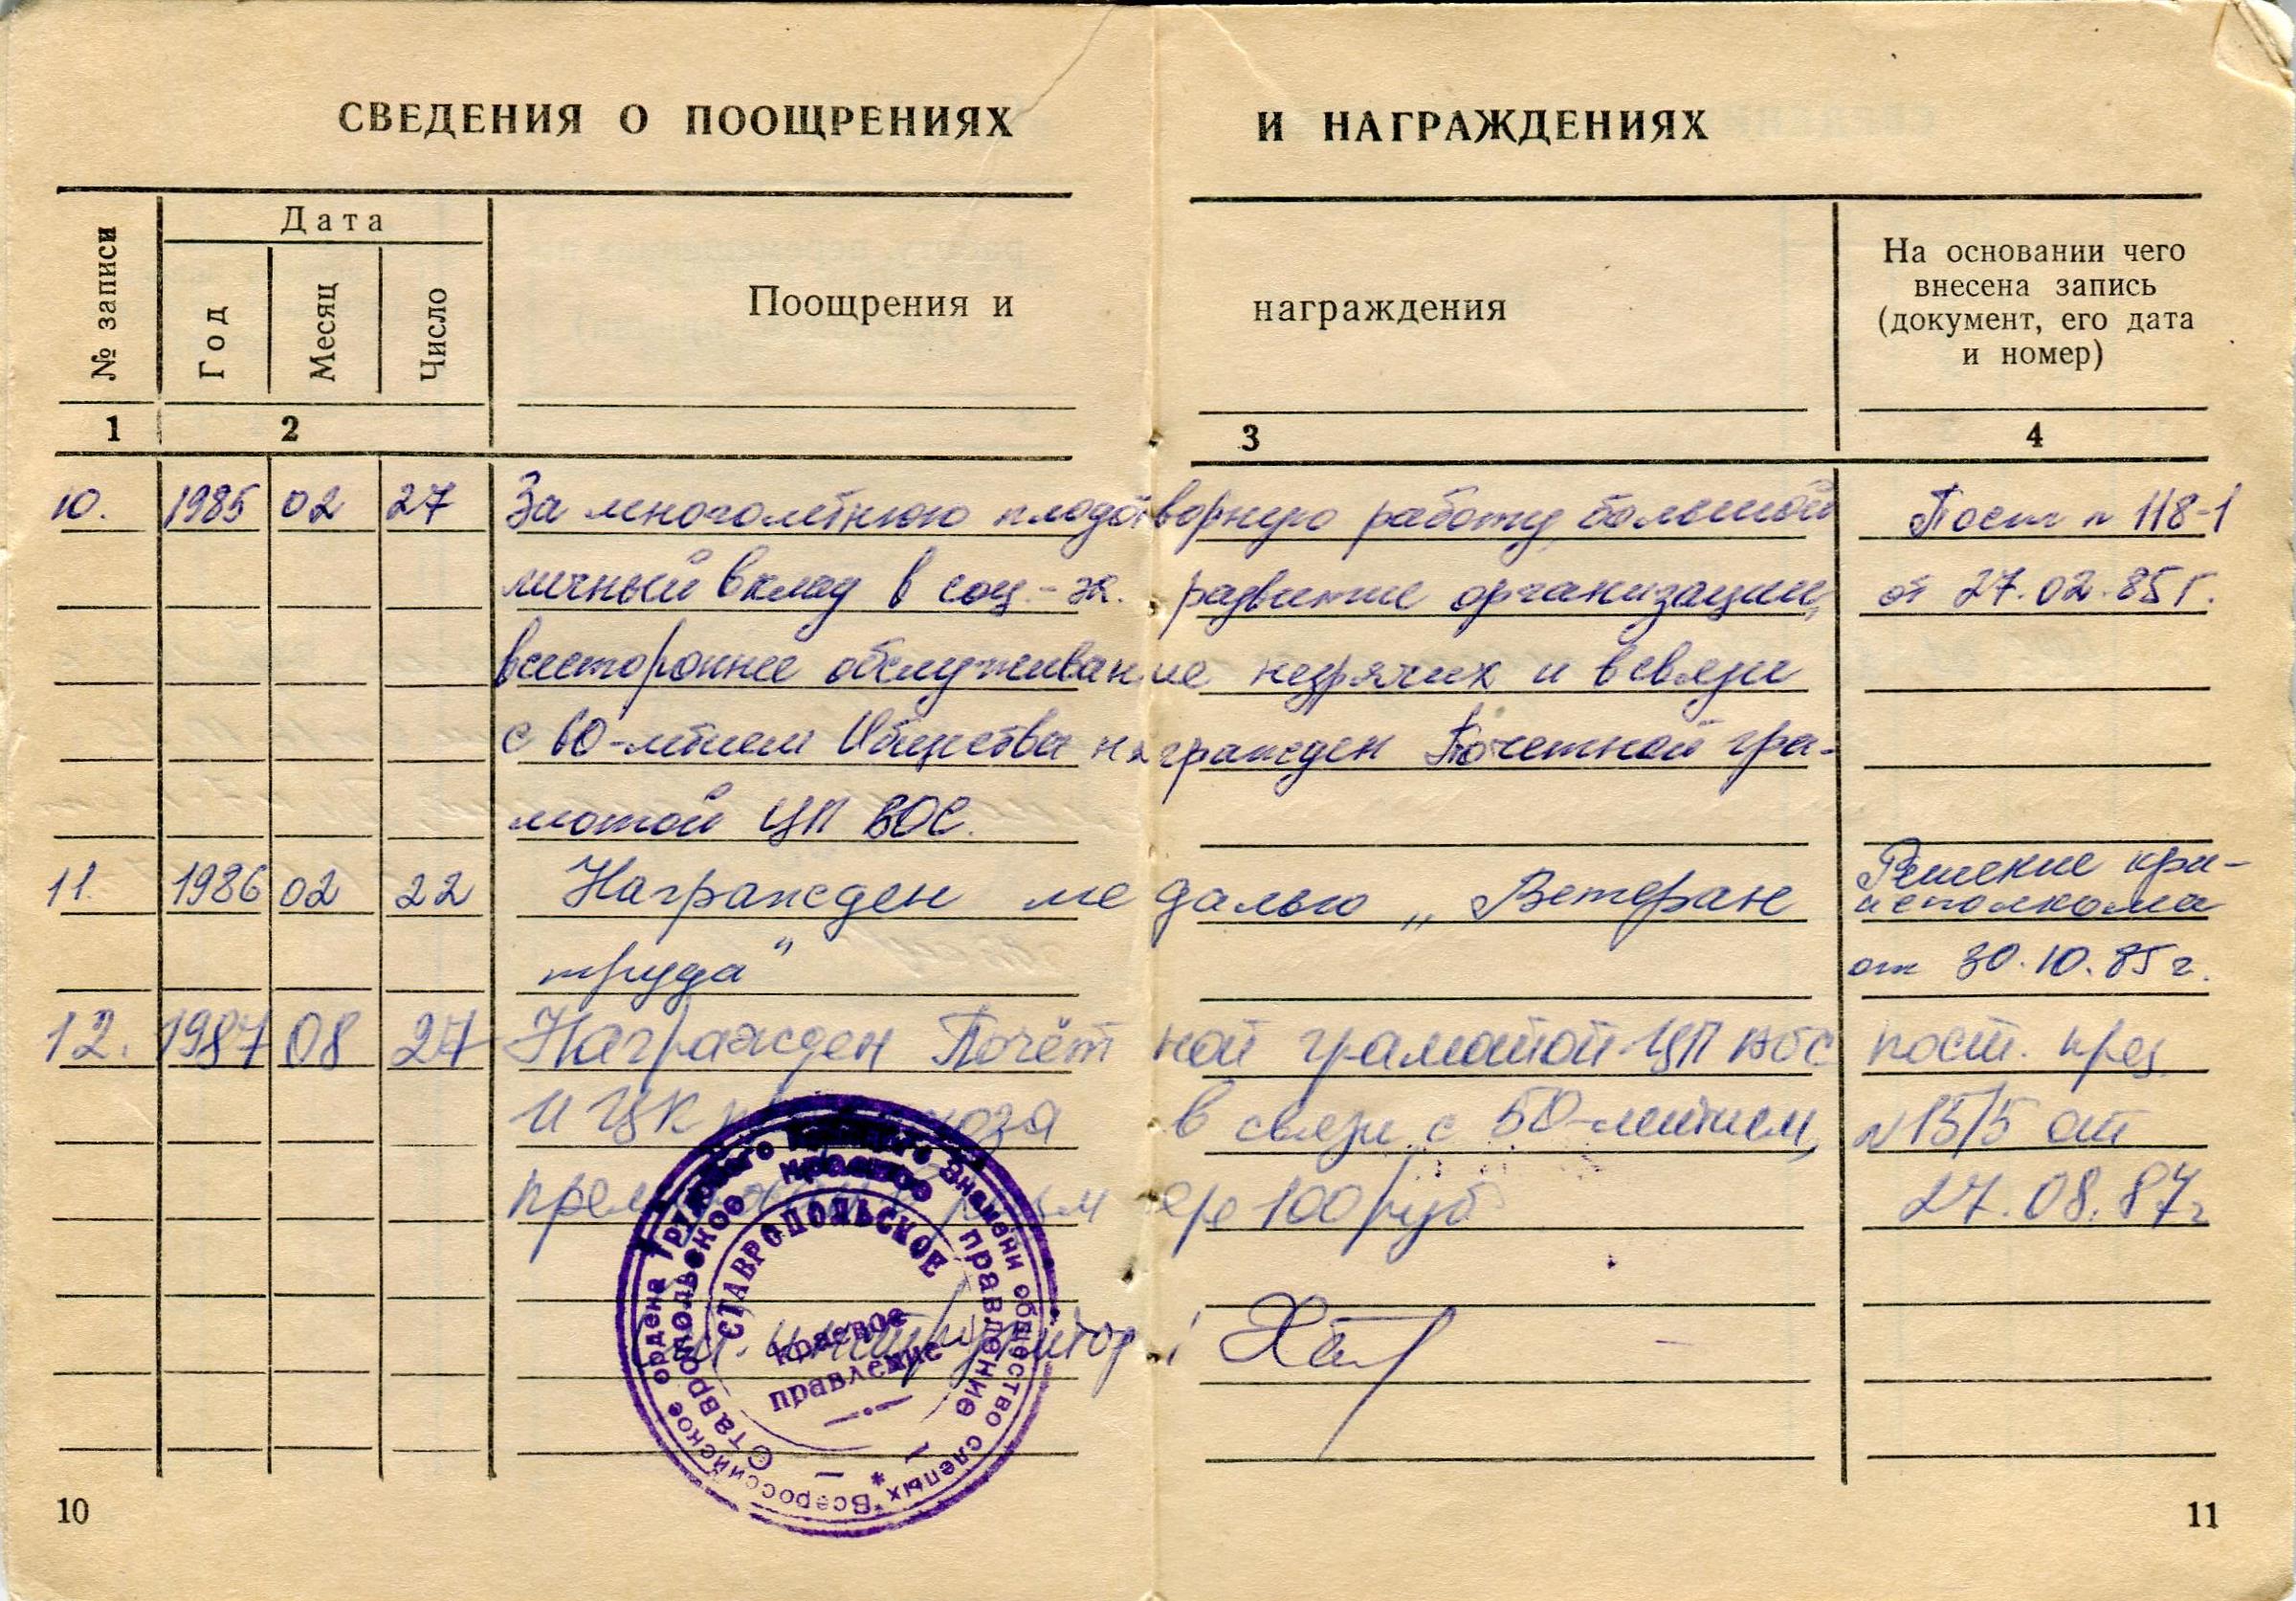 СВЕДЕНИЯ О ПООЩРЕНИЯХ И НАГРАЖДЕНИЯХ
№ записи
Дата
Год
Месяц
Число
Поощрения и награждения
На основании чего
внесена запись
(документ, его дата
и номер)
1 2 3 4
10. 1985 02 27 За многолетнюю плодотворную работу, большой Пост N 118-1
личный вклад в соц.-эк. развитие организации, от 27.02.85 г.
всестороннее обслуживание незрячих и в связи
с 60-летием Общества награжден Почетной гра-
мотой ЦП ВОС.
11. 1986 02 22 Награжден медалью „Ветеран Решение кра-
исполкома
труда" от 30.10.85 г.
12. 1987 08 27 Награжден Почётной грамотой ЦП ВОС пост. през.
и ЦК в связи с 50-летием, N 15/5 от
100 руб 27.08.87 г
инструктор
Всероссийское ордена Трудового Красного Знамени общество слепых
Ставропольское краевое правление
СТАВРОПОЛЬСКОЕ
краевое
правление
10
11